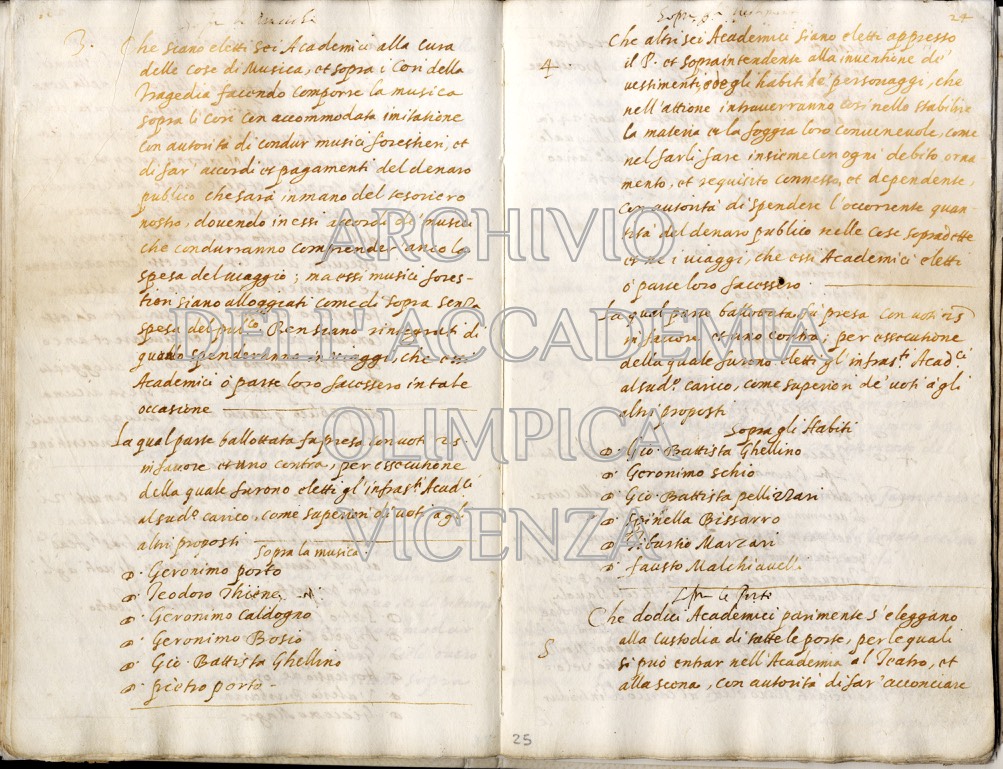 3.
Che siano eletti sei Academici alla cura
delle cose di Musica, et sopra i Cori della
Tragedia facendo comporre la musica
sopra li cori con accommodata imitatione
con autorità di condur musici foresteri, et
di far' accordi et pagamenti del denaro
publico che sarà in mano del tesoriero
nostro, dovendo in essi accordi de' musici
che condurranno comprender anco la
spesa del viaggio; ma essi musici fores-
tieri siano alloggiati come di sopra senza
spesa del pub.co Ben siano rintegrati di
quanto spenderanno in viaggi, che essi
Academici ò parte loro facessero in tale
occasione
La qual parte ballottata fu presa con voti 25.
in favore et uno contra, per essecutione
della quale furono eletti gl'infras.ti Acad.ci
al sud.o carico, come superiori di voti a gl'
altri proposti
Sopra la musica
D. Geronimo porto
D. Teodoro Thiene
D. Geronimo Caldogno
D. Geronimo Bosio
D. Gio. Battista Ghellino
D. pietro porto
24
4
Che altri sei Academici siano eletti appresso
il P. et sopraintendente alla inventione de'
vestimenti, o de gli habiti de' personaggi, che
nell'attione intraverranno così nello stabilir
la materia et la foggia loro convenevole, come
nel farli fare insieme con ogni debito orna
mento, et requisito connesso, et dependente,
con autorità di spendere l'occorrente quan-
tità del denaro publico nelle cose sopradette
et ne i viaggi, che essi Academici eletti
ò parte loro facessero
La qual parte ballottata fu presa con voti 25
in favore et uno contra; per essecutione
della quale furono eletti gl'infras.ti Acad.ci
al sud.o carico, come superiori de' voti à gli
altri proposti
Sopra gli Habiti
D. Gio. Battista Ghellino
D. Geronimo schio
D. Gio. Battista pellizzari
D. Spinella Bissarro
D. Tiburtio Marzari
D. fausto Malchiavelli
Sopra le Porte
5
Che dodici Academici parimente s'eleggano
alla custodia di tutte le porte, per le quali
si può entrar nell'Academia al Teatro, et
alla scena, con autorità di far' acconciare
25
ARCHIVIO
DELL'ACCADEMIA
OLIMPICA
VICENZA